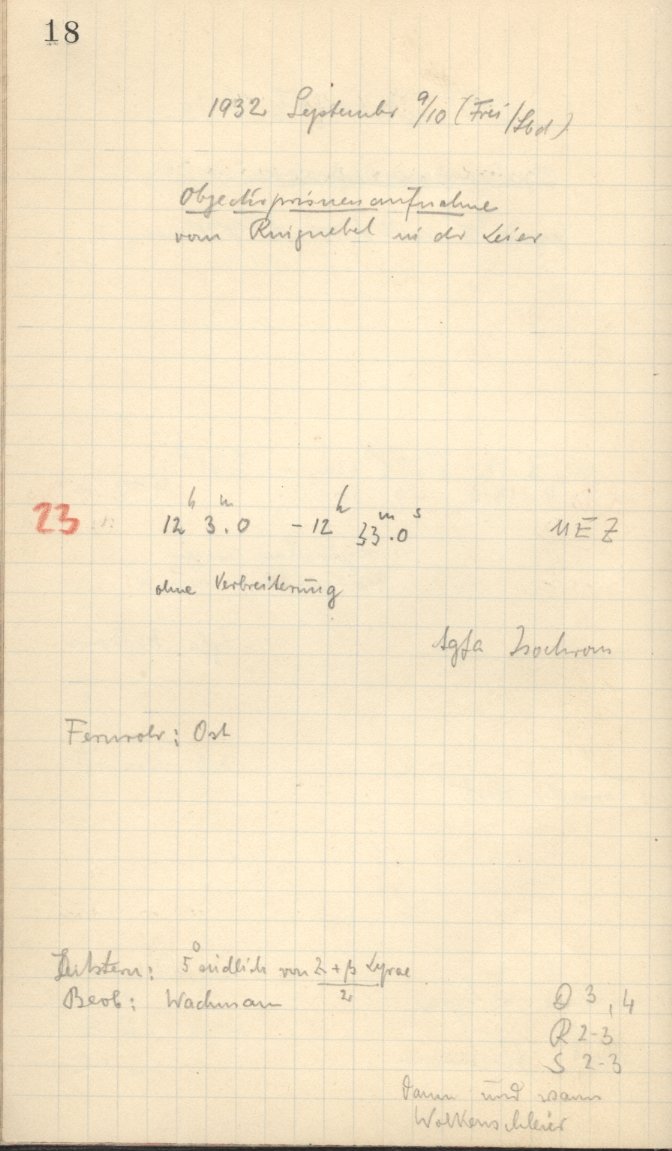 18
1932 September 9/10 (Frei/Sbd)
Objectivprismenaufnahme
vom Ringnebel in der Leier
23 12h 3m.0 - 12h 33m.0s MEZ
ohne Verbreiterung
Agfa Isochrom
Fernrohr: Ost
Leitstern: 5° südlich von
Lyrae
2
Beob: Wachmann
3,4
R 2-3
S 2-3
dann und wann
Wolkenschleier